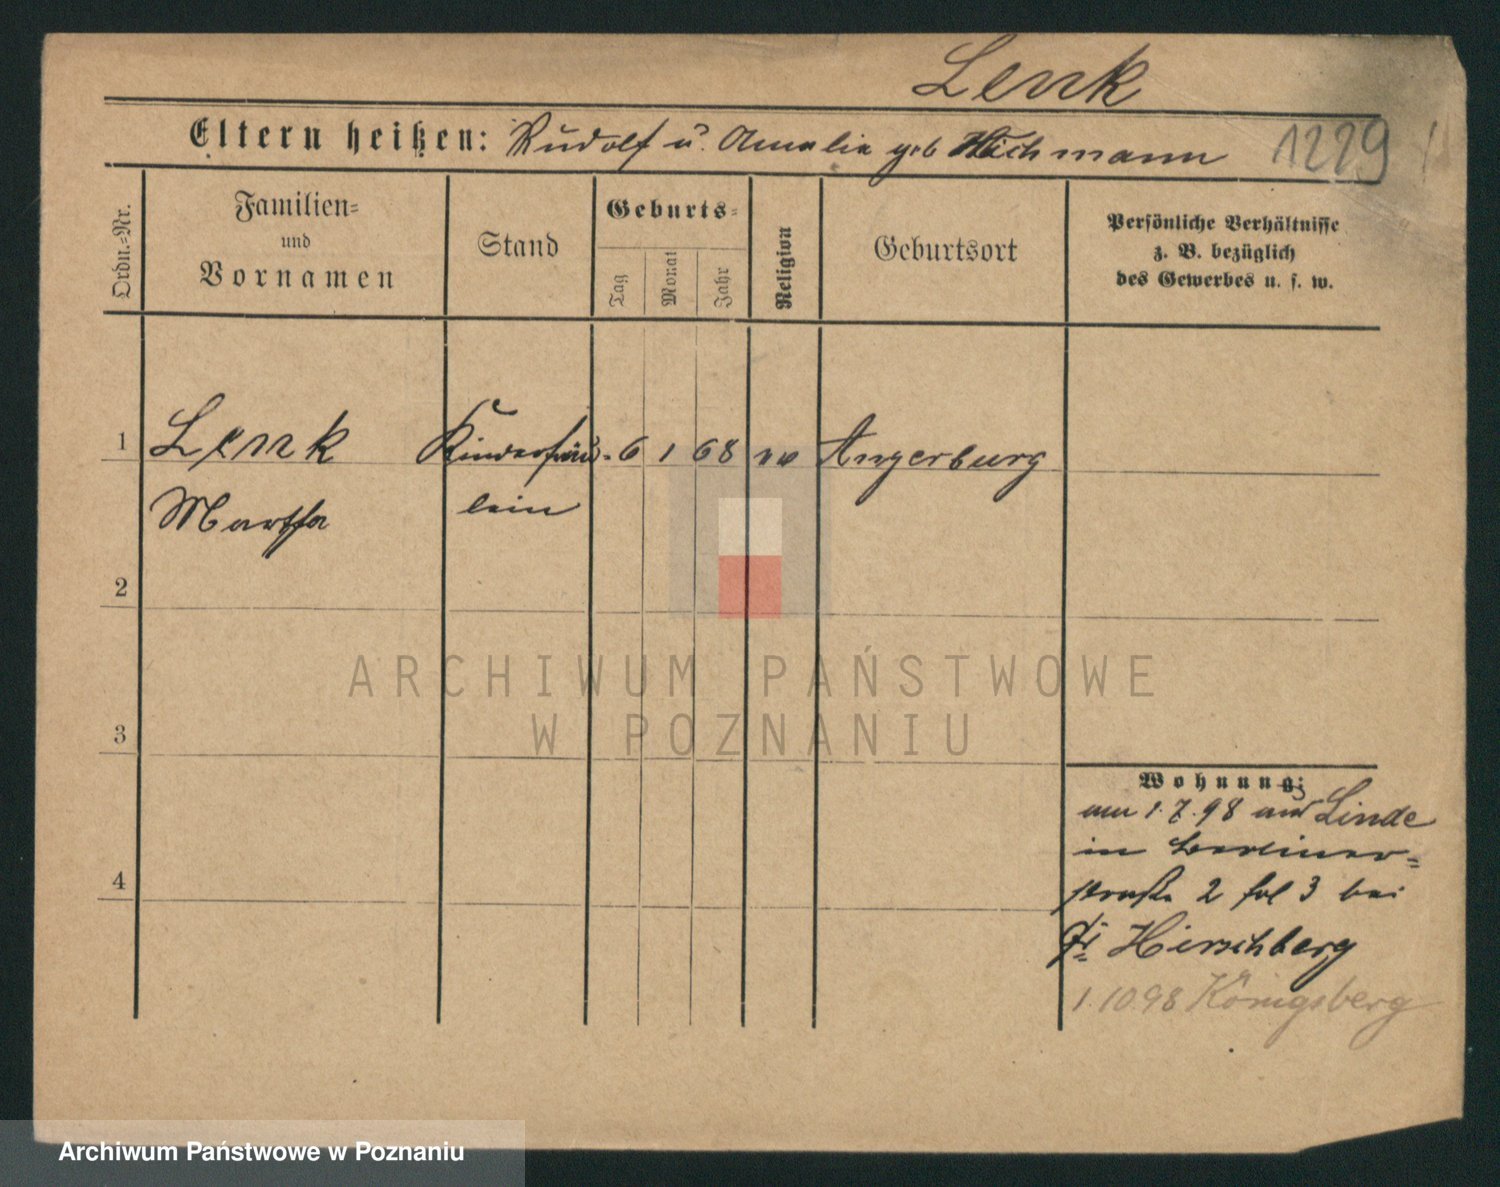 Lenk
Eltern heißen: Rudolf u. Amalie geb Hichmann 1229
Ordn.-Nr.
Familien-
und
Vornamen
Stand
Geburts-
Tag
Monat
Jahr
Religion
Geburtsort
Persönliche Verhältnisse
z. B. bezüglich
des Gewerbes u. s. w.
1 Lenk Kinderfräu- 6 1 68 ev Angerburg
Martha lein
2
3
4
ARCHIWUM PAŃSTWOWE
W POZNANIU
Wohnung:
am 1.7.98 aus Linde
in Berliner-
straße 2 fol 3 bei
Hirschberg
1.10.98 Königsberg
Archiwum Państwowe w Poznaniu